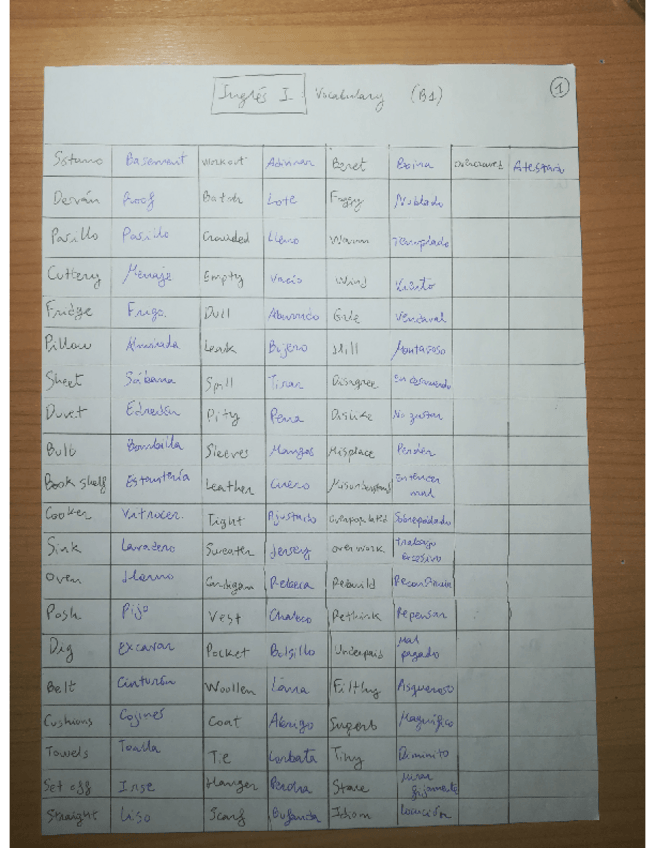 Inglés I. Vocabulary (B1) 1
Sótano Basement Workout Beret Boina Overcrowd Atestar
Desván Roof Batch Lote Foggy Nublado
Pasillo Pasillo Crowded Lleno Warm Templado
Cuttery Menaje Empty Vacío Wind Viento
Fridge Frigo. Dull Aburrido Gale Vendaval
Pillow Almohada Leak Hill Montañoso
Sheet Sábana Spill Tirar Disagree En desacuerdo
Duvet Edredón Pity Pena Dislike No gustar
Bulb Bombilla Sleeves Mangas Misplace Perder
Book shelf Estantería Leather Cuero Misunderstand Entender mal
Cooker Vitrocer. Tight Ajustado Overpopulated Sobrepoblado
Sink Lavadero Sweater Jersey Overwork Trabajo excesivo
Oven Horno Cardigan Rebeca Rebuild Reconstruir
Posh Pijo Vest Chaleco Rethink Repensar
Dig Excavar Pocket Bolsillo Underpaid Mal pagado
Belt Cinturón Woollen Lana Filthy Asqueroso
Cushions Cojines Coat Abrigo Superb Magnífico
Towels Toalla Tie Corbata Tiny Diminuto
Set off Irse Hanger Percha Stare Mirar fijamente
Straight Liso Scarf Bufanda Idiom Locución